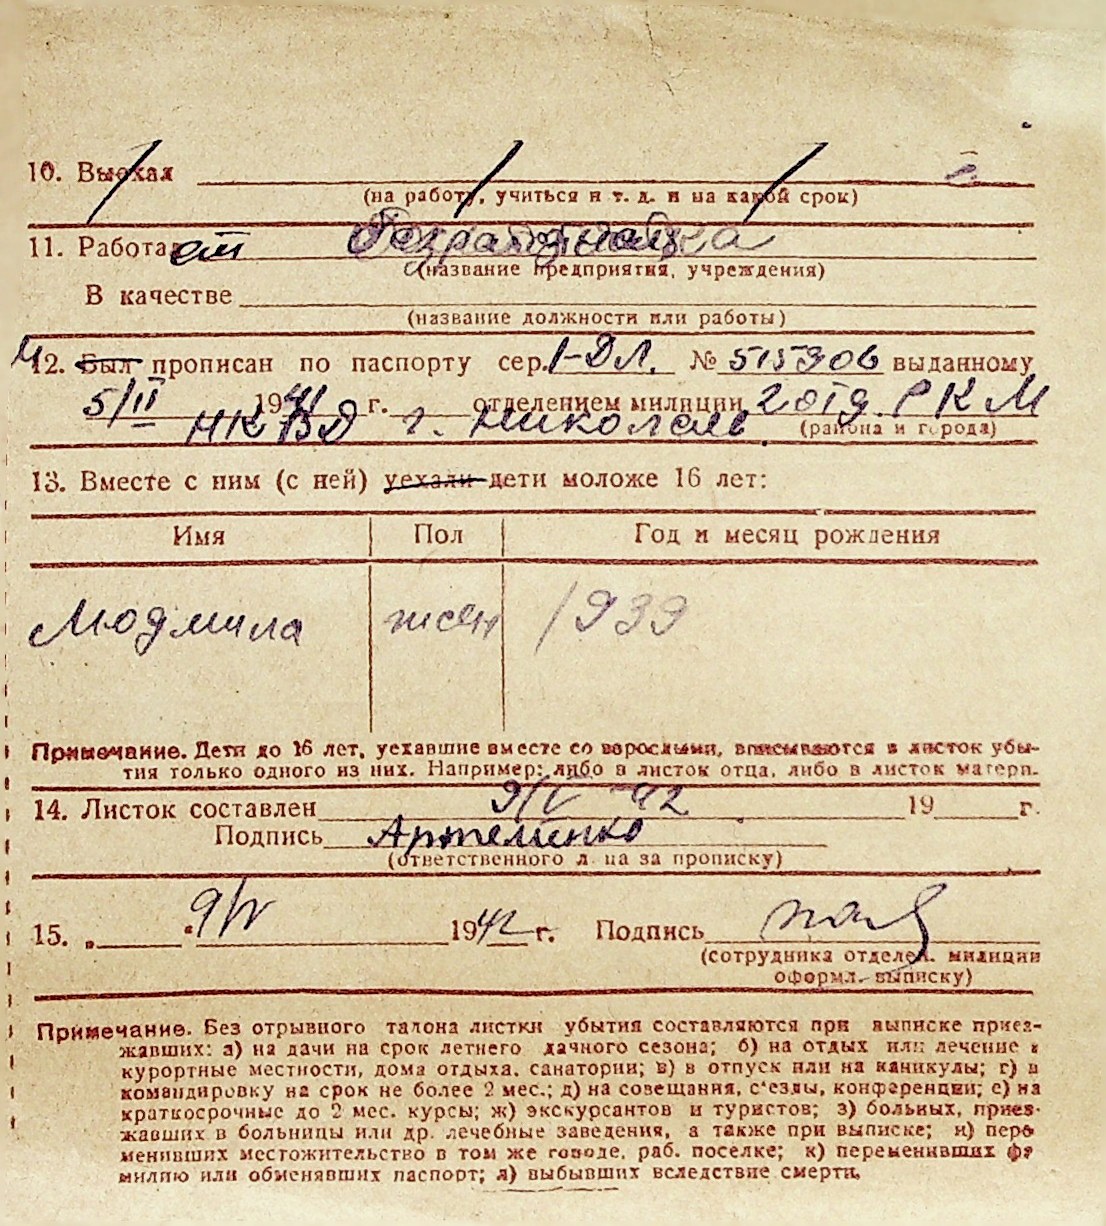 10. Выехал
(на работу, учиться и т. д. и на какой срок)
11. Работает
(название предприятия, учреждения)
В качестве
(название должности или работы)
12. Был прописан по паспорту сер. I-ДЛ. № 515906 выданному
5/II 1941 г. отделением милиции 2 отд. РКМ
НКВД г. Николаев (района и города)
13. Вместе с ним (с ней) уехали дети моложе 16 лет:
Имя Пол Год и месяц рождения
Людмила жен 1939
Примечание. Дети до 16 лет, уехавшие вместе со взрослыми, вписываются в листок убы-
тия только одного из них. Например: либо в листок отца, либо в листок матери.
14. Листок составлен 9/V 42 19 г.
Подпись Артеменко
(ответственного лица за прописку)
15. „ “ 9/V 1942 г. Подпись
(сотрудника отделен. милиции
оформл. выписку)
Примечание. Без отрывного талона листки убытия составляются при выписке приез-
жавших: а) на дачи на срок летнего дачного сезона; б) на отдых или лечение в
курортные местности, дома отдыха, санатории; в) в отпуск или на каникулы; г) в
командировку на срок не более 2 мес.; д) на совещания, с'езды, конференции; е) на
краткосрочные до 2 мес. курсы; ж) экскурсантов и туристов; з) больных, приез-
жавших в больницы или др. лечебные заведения, а также при выписке; и) пере
менивших местожительство в том же городе, раб. поселке; к) переменивших фа
милию или обменявших паспорт; л) выбывших вследствие смерти.